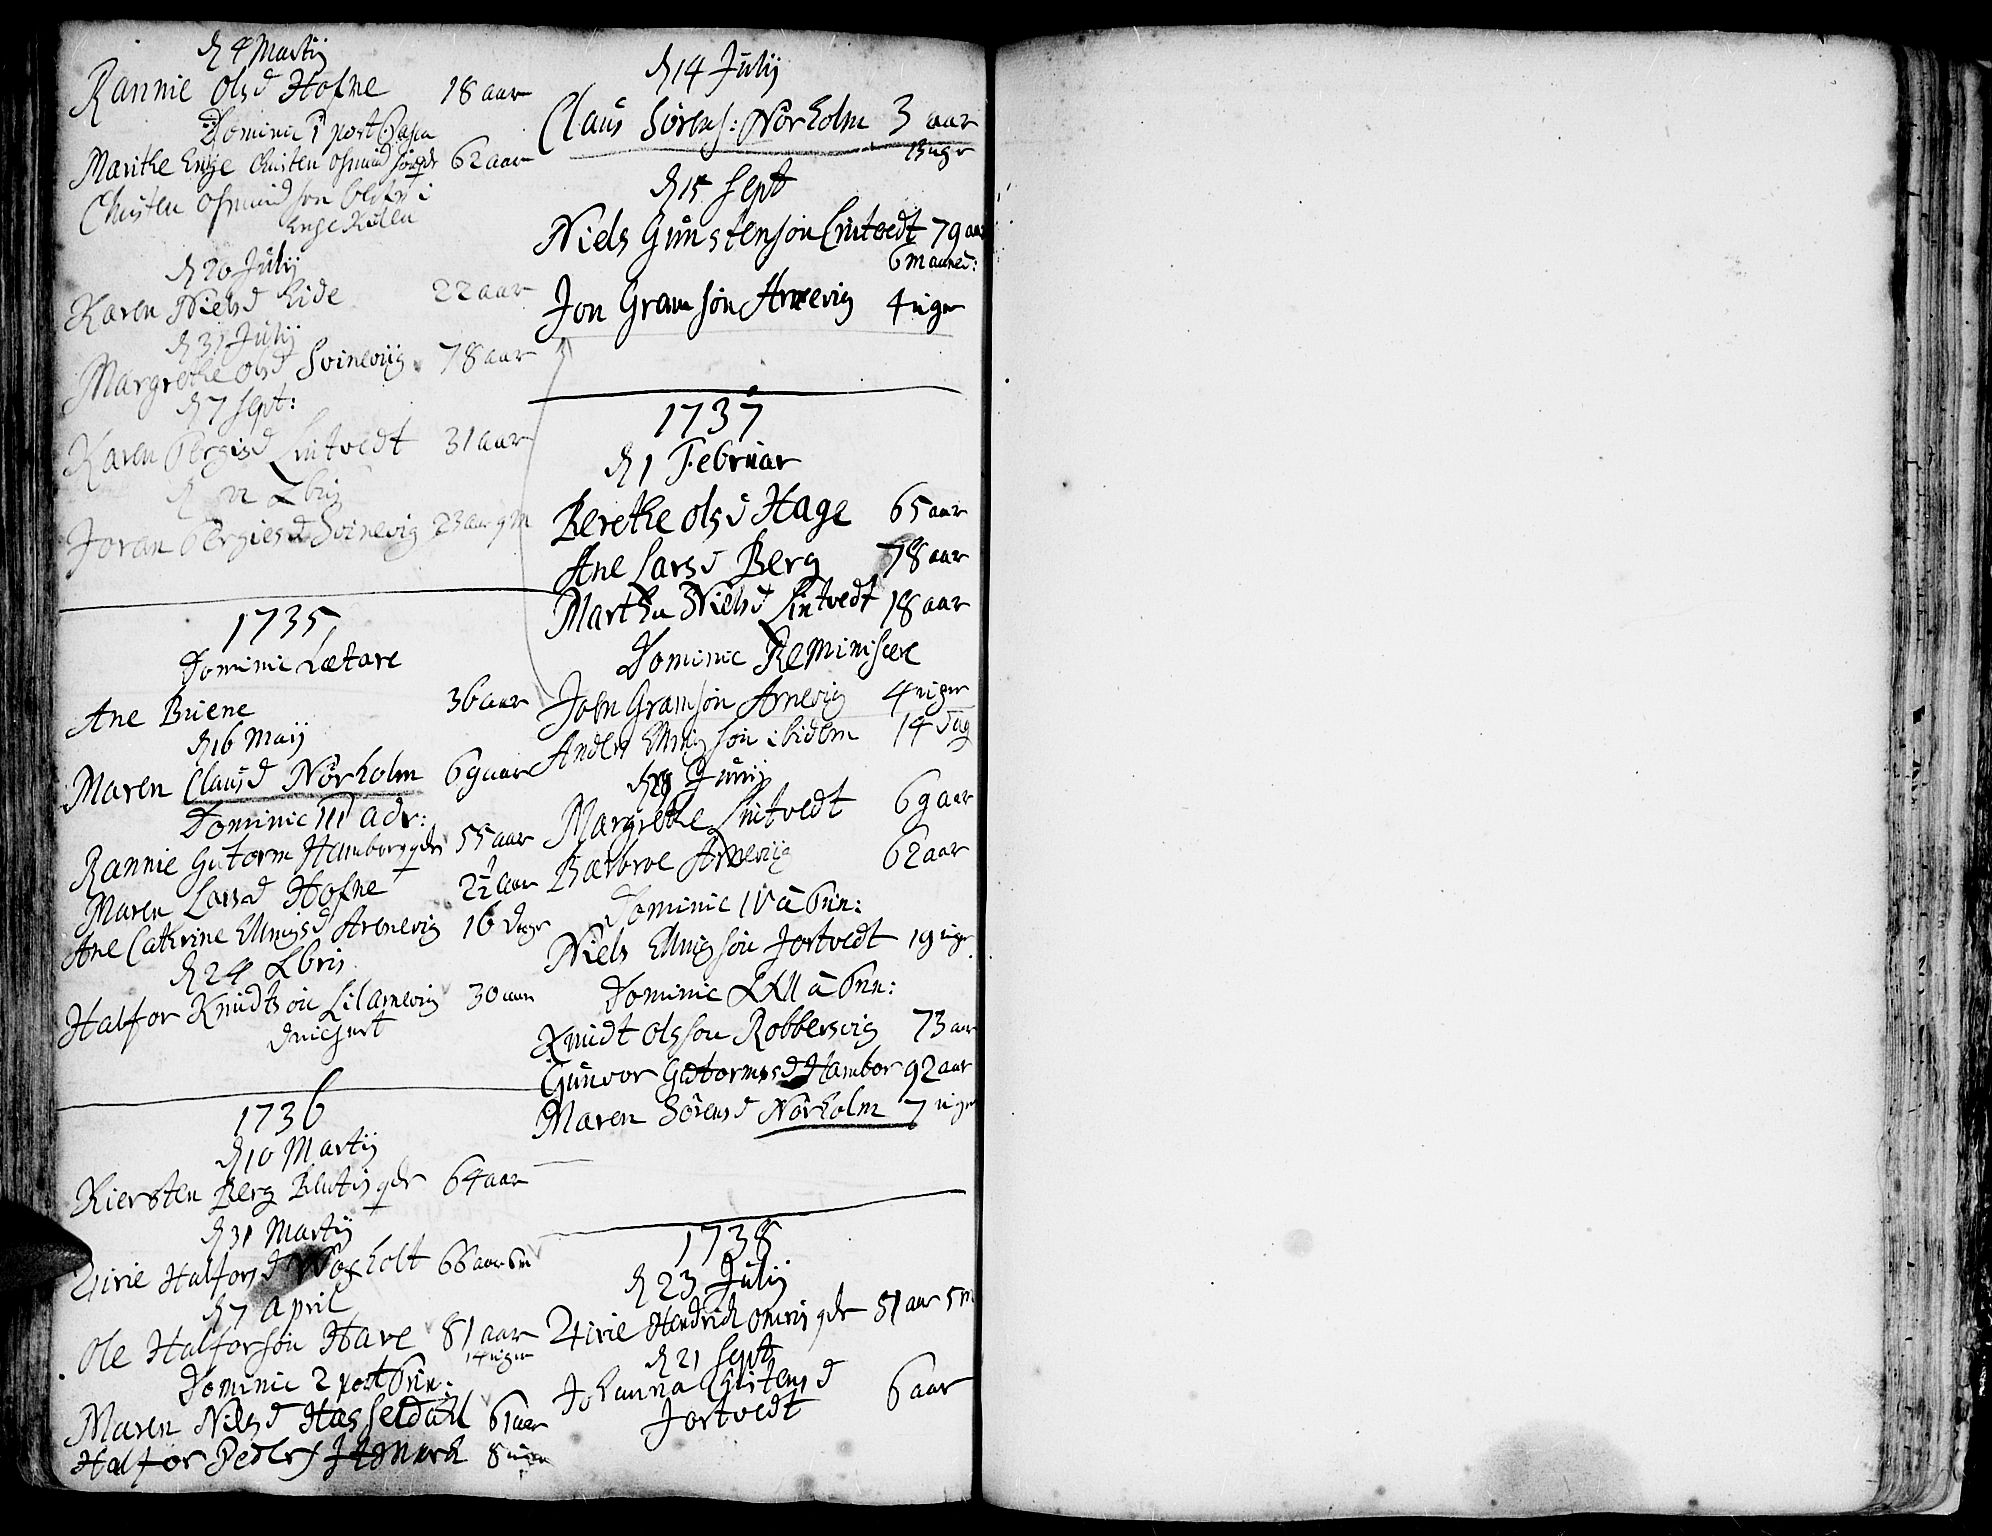 d 4 Martij
Rannie Olsd Hofne 18 aar
Dominic 1 post Pascha
Marithe Enge Christen Osmundsøns 62 aar
Christen Osmundson
Enge Kilen
d 20 Julij
Karen Nielsd Eide 22 aar
d 31 Julij
Margrethe Olsd Svinevig 78 aar
d 7 Sept:
Karen Tergisd Lintvedt 31 aar
d 22 Xbris
Joran Tergiesd Svinevig 23 aar 9 m
1735
Dominic Lætare
Ane Buene 36 aar
d 16 Maij
Maren Clausd Nørholm 69 aar
Dominic III adv:
Rannie Gutorm Hamborg qdr 55 aar
Maren Larsd Hofne 2 1/2 aar
Ane Cathrine Ellingsd Arnevig 16 dage
d 24 Xbris
Halfor Knudtsøn Lilarnevig 30 aar
1736
d 10 Martij
Kiersten Berg qdr 64 aar
d 31 Martij
Zirie Halforsd Wogsholt 66 aar 6 m
d 7 April
Ole Halforsøn Have 81 aar
14 uger
Dominic 2 post Trin:
Maren Nilsd Hasseldall 61 aar
Halfor Peders 8 uger
d 14 Julij
Claus Sørens: Nørholm 3 aar
13 uger
d 15 Sept
Niels Gunstensøn Lintvedt 79 aar
6 maaned:
Jon Gramsøn Arnevig 4 uger
1737
d 1 Februar
Berethe Olsd Hage 65 aar
Ane Larsd Berg 78 aar
Martha Nielsd Lintvedt 18 aar
Dominic Reminiscere
John Gramsøn Arnevig 4 uger
Anders Ellingsøn ibidem 14 dag
Junij
Margrethe Lintvedt 69 aar
Barbroe Arnevig 62 aar
Dominic IV a Trin:
Niels Ellingsøn Jortvedt 19 uger
Dominic XXII a Trin:
Knudt Olsson Robbersvig 73 aar
Gunvor Gutormsd Hambor 92 aar
Maren Sørensd Nørholm 7 uger
1738
d 23 Julij
Zirie Hendrich qdr 51 aar 5 m
d 21 Sept
Johanna Christensd
Jortvedt 6 aar